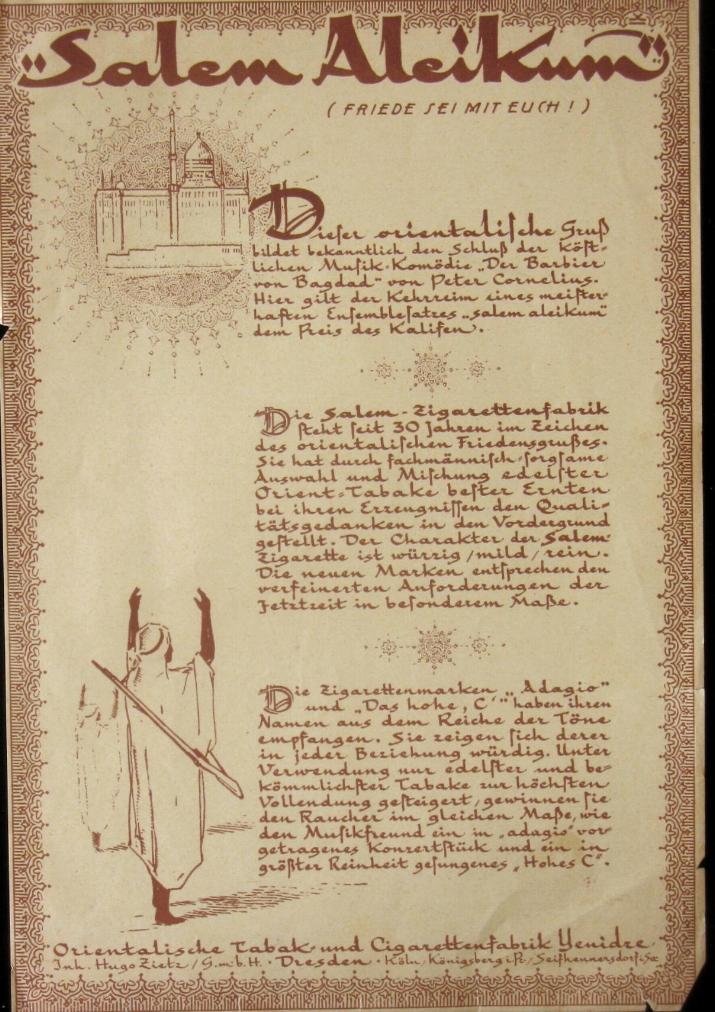 „Salem Aleikum”
( FRIEDE SEI MIT EUCH ! )
Dieſer orientaliſche Gruß
bildet bekanntlich den Schluß der köſt-
lichen Muſik-Komödie „Der Barbier
von Bagdad“ von Peter Cornelius.
Hier gilt der Kehrreim eines meiſter-
haften Enſembleſatzes „salem aleikum“
dem Preis des Kalifen.
Die Salem-Zigarettenfabrik
ſteht ſeit 30 Jahren im Zeichen
des orientaliſchen Friedensgrußes.
Sie hat durch fachmänniſch-ſorgſame
Auswahl und Miſchung edelſter
Orient-Tabake beſter Ernten
bei ihren Erzeugniſſen den Quali-
tätsgedanken in den Vordergrund
geſtellt. Der Charakter der Salem-
Zigarette ist würzig / mild / rein.
Die neuen Marken entſprechen den
verfeinerten Anforderungen der
Jetztzeit in beſonderem Maße.
Die Zigarettenmarken „Adagio”
und „Das hohe ‚C‘” haben ihren
Namen aus dem Reiche der Töne
empfangen. Sie zeigen ſich derer
in jeder Beziehung würdig. Unter
Verwendung nur edelſter und be-
kömmlichſter Tabake zur höchſten
Vollendung geſteigert, gewinnen ſie
den Raucher im gleichen Maße, wie
den Muſikfreund ein in „adagio” vor-
getragenes Konzertſtück und ein in
größter Reinheit geſungenes „Hohes C”.
Orientaliſche Tabak- und Cigarettenfabrik Yenidze
Inh. Hugo Zietz / G.m.b.H. · Dresden · Köln / Königsberg i.Pr. / Seifhennersdorf i.Sa.